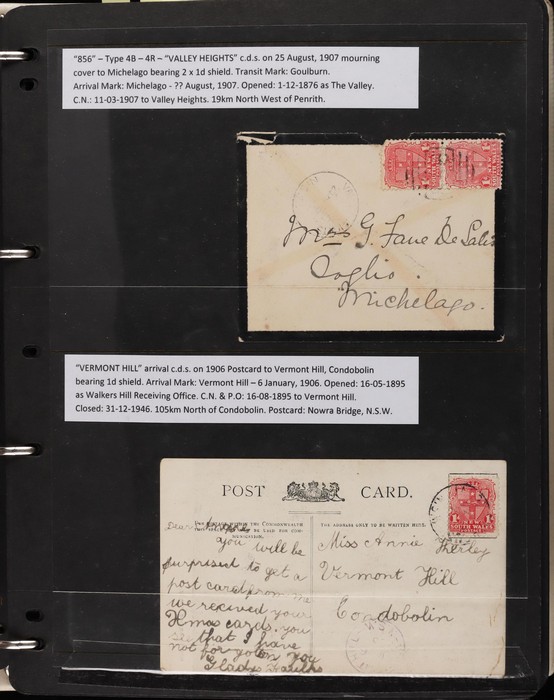 "856" – Type 4B – 4R – "VALLEY HEIGHTS" c.d.s. on 25 August, 1907 mourning
cover to Michelago bearing 2 x 1d shield. Transit Mark: Goulburn.
Arrival Mark: Michelago - ?? August, 1907. Opened: 1-12-1876 as The Valley.
C.N.: 11-03-1907 to Valley Heights. 19km North West of Penrith.
G. Fane De Salis
Michelago.
"VERMONT HILL" arrival c.d.s. on 1906 Postcard to Vermont Hill, Condobolin
bearing 1d shield. Arrival Mark: Vermont Hill – 6 January, 1906. Opened: 16-05-1895
as Walkers Hill Receiving Office. C.N. & P.O: 16-08-1895 to Vermont Hill.
Closed: 31-12-1946. 105km North of Condobolin. Postcard: Nowra Bridge, N.S.W.
POST CARD.
THE ADDRESS ONLY TO BE WRITTEN HERE.
NEW
SOUTH WALES
you will be
surprised to get a
post card from me
we received your
Xmas cards. you
that I have
not forgoton you
Gladys
Miss Annie
Vermont Hill
Condobolin